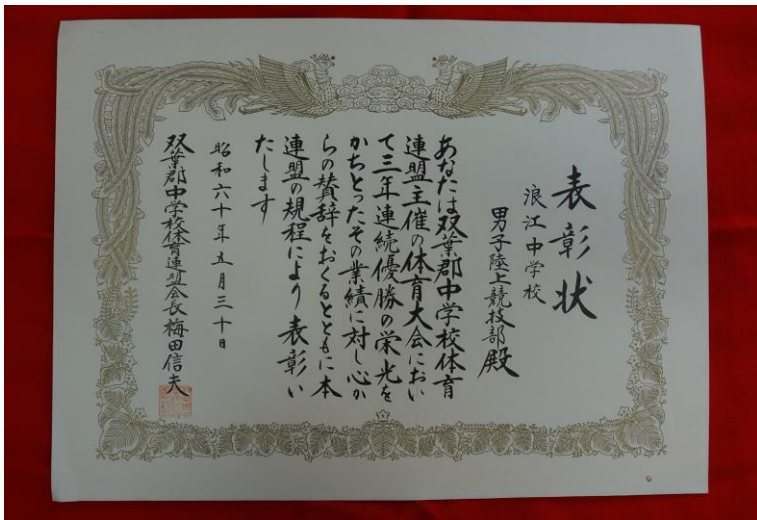 表彰状
浪江中学校
男子陸上競技部殿
あなたは双葉郡中学校体育
連盟主催の体育大会におい
て三年連続優勝の栄光を
かちとったその業績に対し心か
らの賛辞をおくるとともに本
連盟の規程により表彰い
たします
昭和六十年五月三十日
双葉郡中学校体育連盟会長梅田信夫